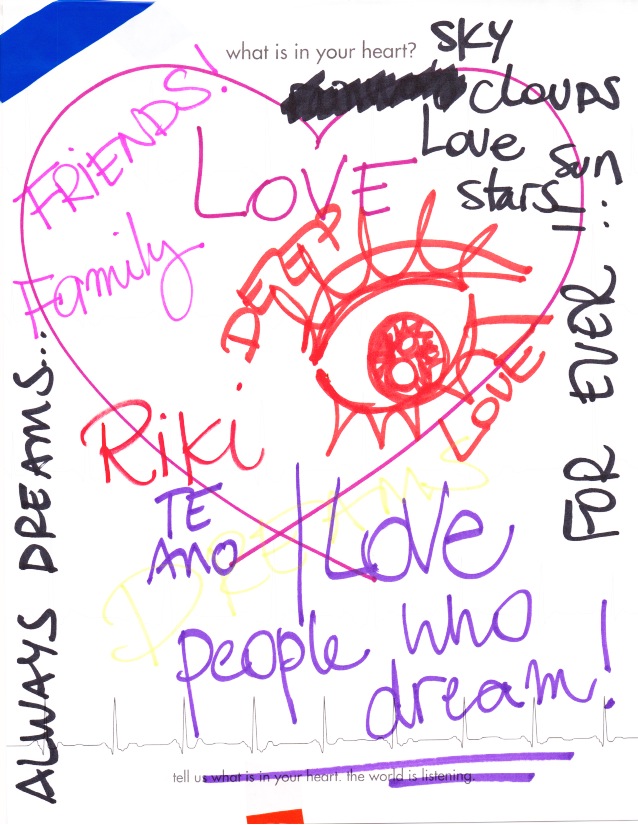 what is in your heart?
SKY
CLOUDS
Love
Sun
stars
!!..
FRIENDS!
LOVE
Family
DEEP
LOVE
FOR EVER
ALWAYS DREAMS...
Riki
DREAMS
TE
AMO
I Love
people who
dream!
tell us what is in your heart. the world is listening.